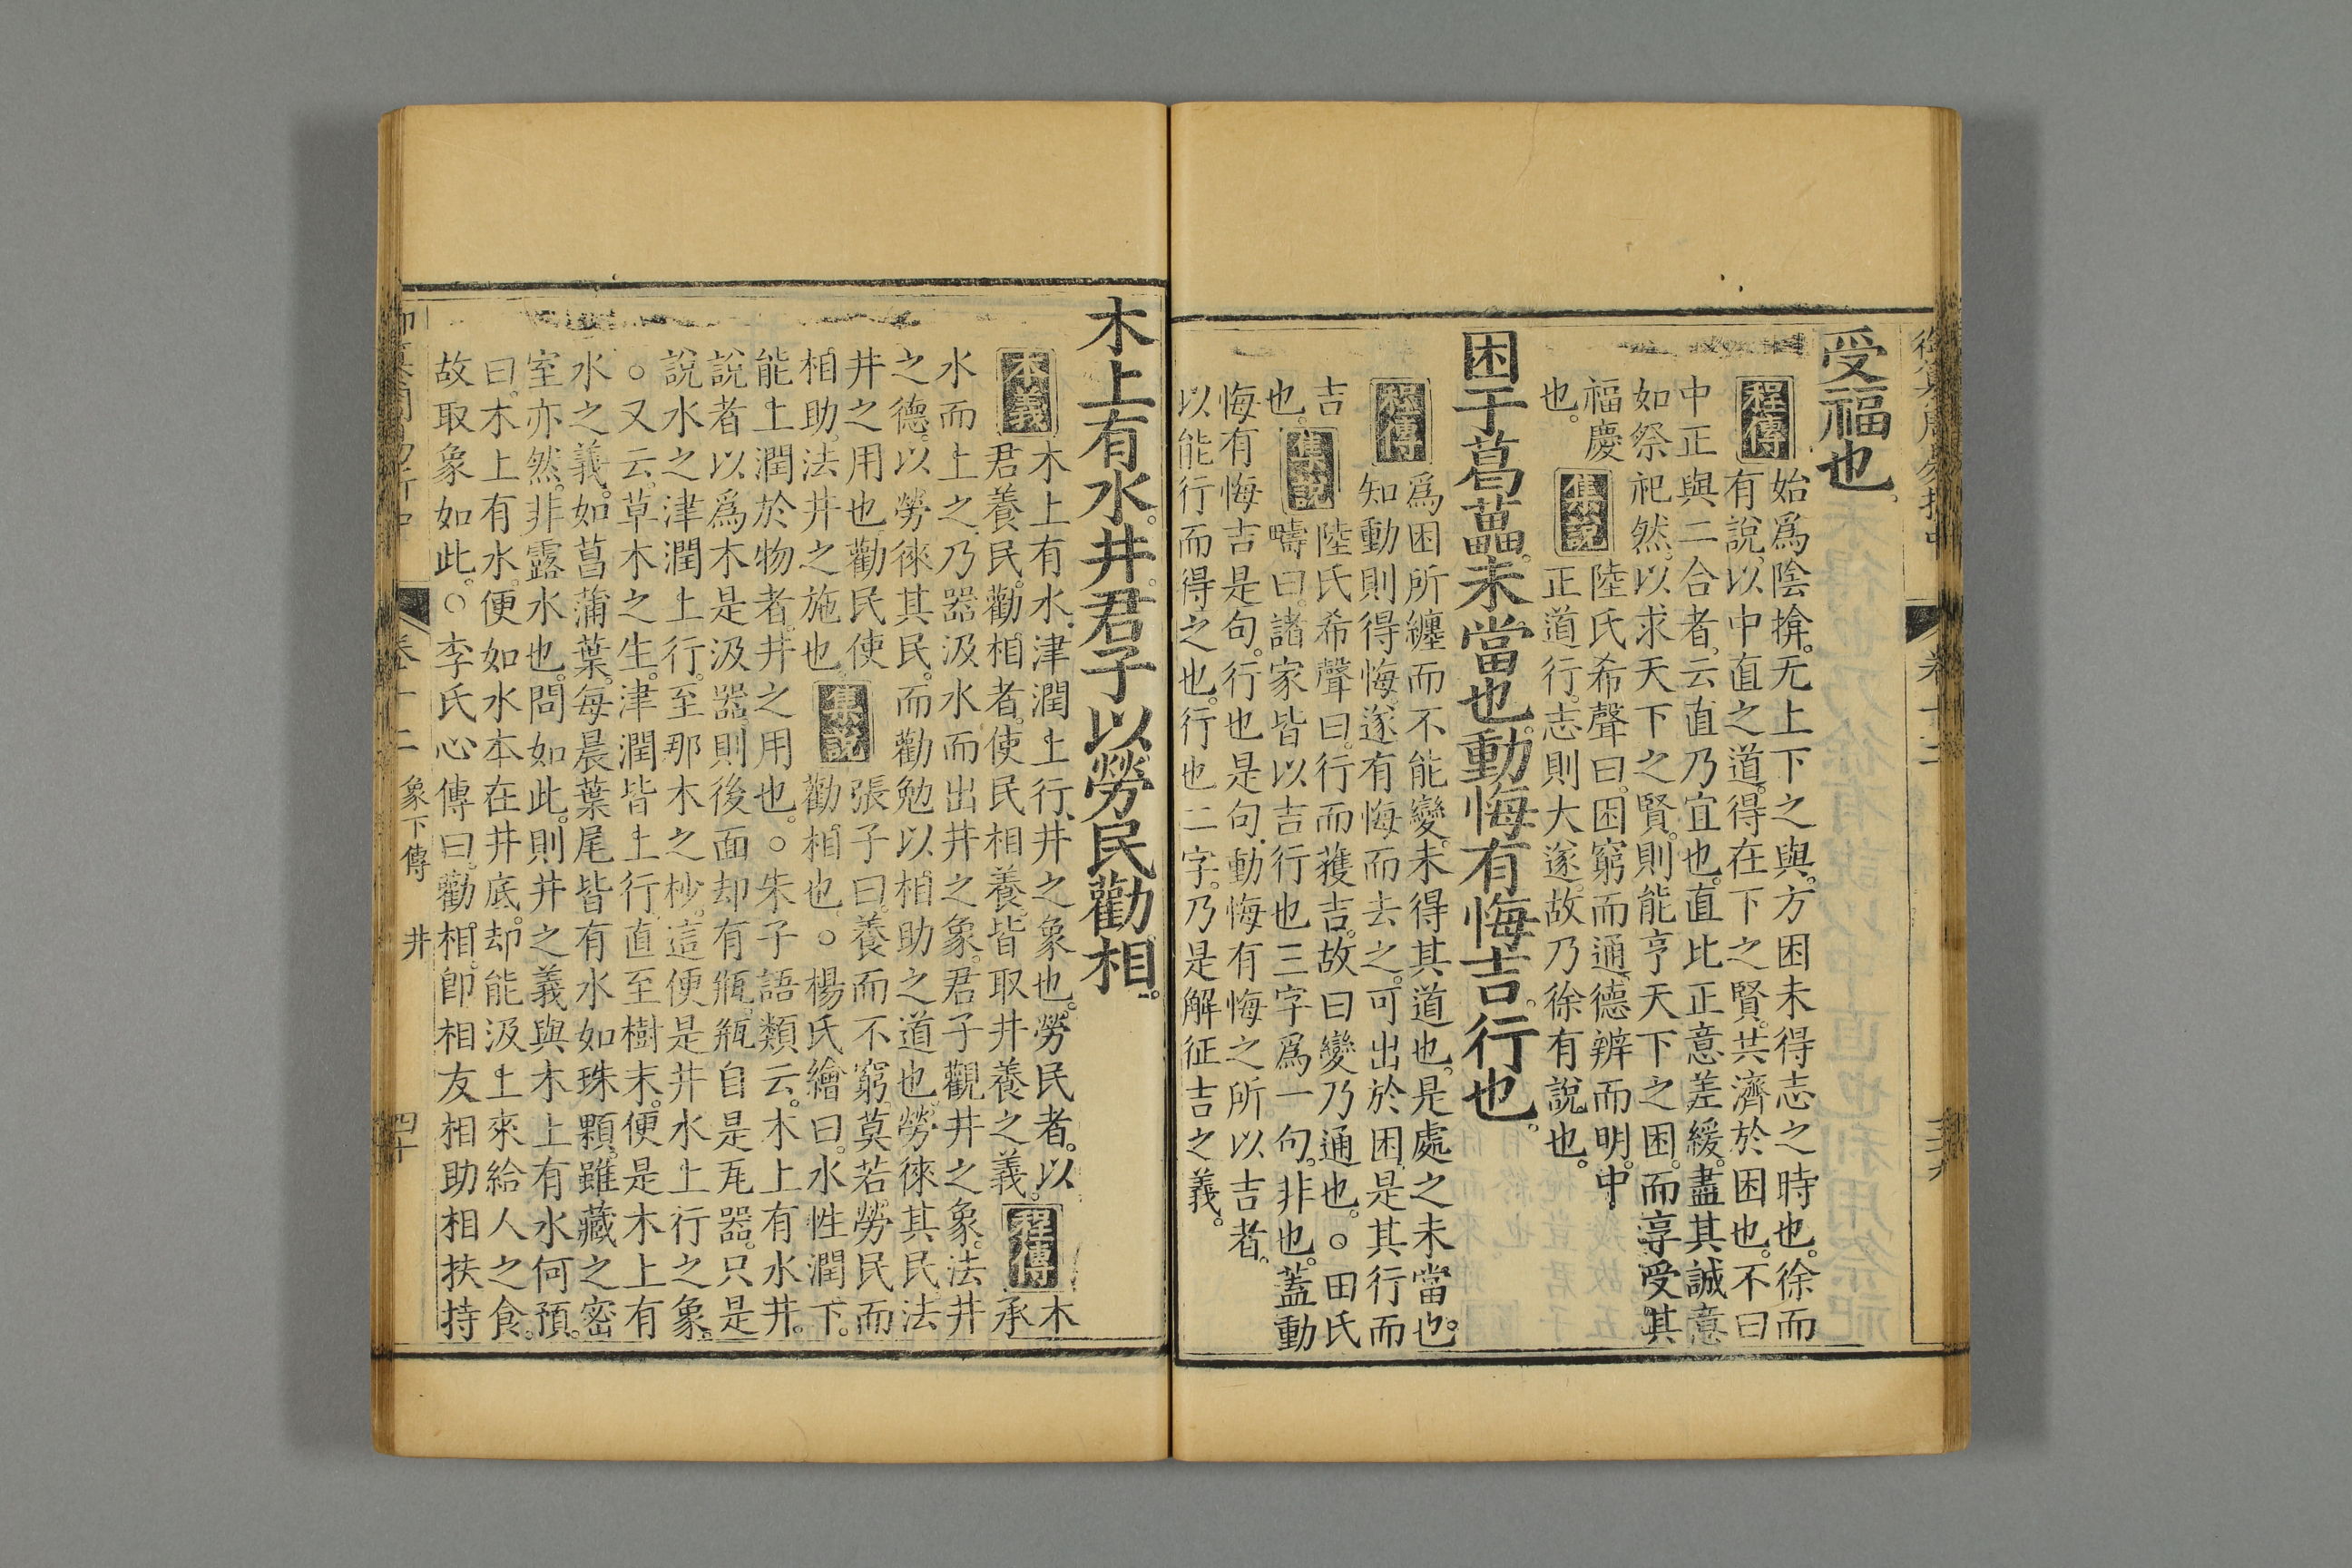 受福也。
程傳 始爲陰揜。无上下之與。方困未得志之時也。徐而
有說。以中直之道。得在下之賢。共濟於困也。不曰
中正與二合者。云直乃宜也。直比正意差緩。盡其誠意
如祭祀然。以求天下之賢。則能亨天下之困。而享受其
福慶
也。 集說 陸氏希聲曰。困窮而通。德辨而明。中
正道行。志則大遂。故乃徐有說也。
困于葛藟。未當也。動悔有悔吉。行也。
程傳 爲困所纏而不能變。未得其道也。是處之未當也。
知動則得悔。遂有悔而去之。可出於困。是其行而
吉
也。 集說 陸氏希聲曰。行而獲吉。故曰變乃通也。○田氏
疇曰。諸家皆以吉行也三字爲一句。非也。蓋動
悔有悔吉是句。行也是句。動悔有悔之所以吉者。
以能行而得之也。行也二字。乃是解征吉之義。
木上有水。井。君子以勞民勸相。
本義 木上有水。津潤上行。井之象也。勞民者。以
君養民。勸相者。使民相養。皆取井養之義。 程傳 木
承
水而上之。乃器汲水而出井之象。君子觀井之象。法井
之德。以勞徠其民。而勸勉以相助之道也。勞徠其民。法
井之用也。勸民使
相助。法井之施也。 集說 張子曰。養而不窮。莫若勞民而
勸相也。○楊氏繪曰。水性潤下。
能上潤於物者。井之用也。○朱子語類云。木上有水井。
說者以爲木是汲器。則後面却有瓶。瓶自是瓦器。只是
說水之津潤上行。至那木之杪。這便是井水上行之象。
○又云。草木之生。津潤皆上行。直至樹末。便是木上有
水之義。如菖蒲葉。每晨葉尾皆有水如珠顆。雖藏之密
室亦然。非露水也。問如此。則井之義與木上有水何預。
曰。木上有水。便如水本在井底。却能汲上來給人之食。
故取象如此。○李氏心傳曰。勸相。卽相友相助相扶持
卷十二 象下傳 井 四十